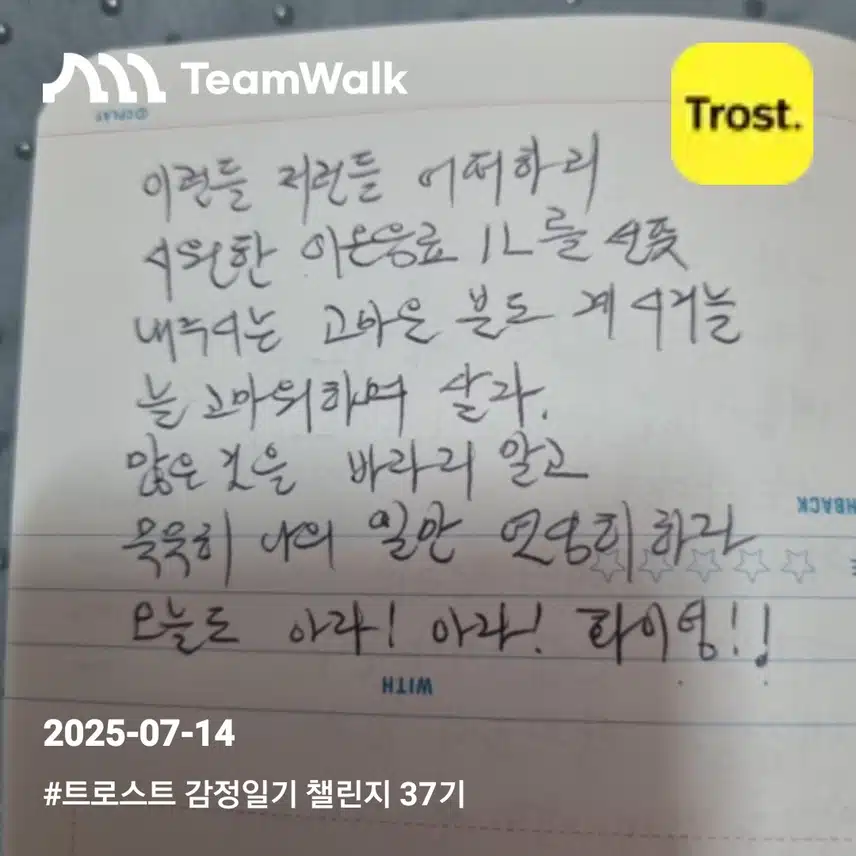 TeamWalk
Trost.
이런들 저런들 어떠하리
시원한 이온음료 1L를 선뜻
내주시는 고마운 분도 계시거늘
늘 고마워하며 살라.
많은 것을 바라리 말고
묵묵히 나의 일만 열심히하라
오늘도 아라! 아라! 화이링!!
WITH
2025-07-14
#트로스트 감정일기 챌린지 37기